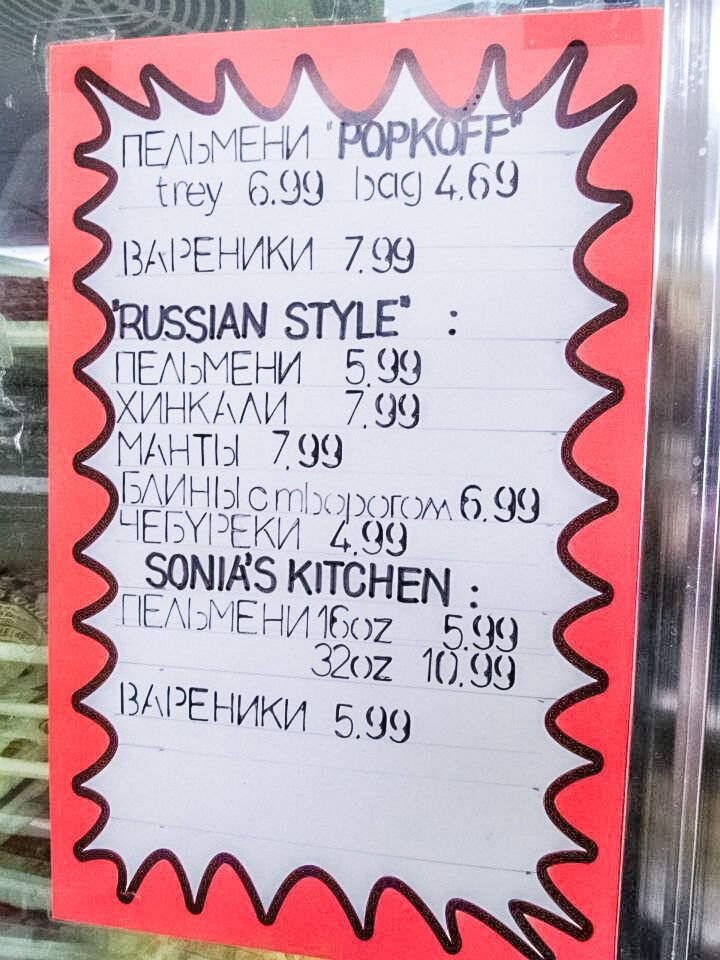 ПЕЛЬМЕНИ "POPKOFF"
trey 6.99 bag 4.69
ВАРЕНИКИ 7.99
"RUSSIAN STYLE" :
ПЕЛЬМЕНИ 5.99
ХИНКАЛИ 7.99
МАНТЫ 7.99
БЛИНЫ с творогом 6.99
ЧЕБУРЕКИ 4.99
SONIA'S KITCHEN :
ПЕЛЬМЕНИ 16oz 5.99
32oz 10.99
ВАРЕНИКИ 5.99